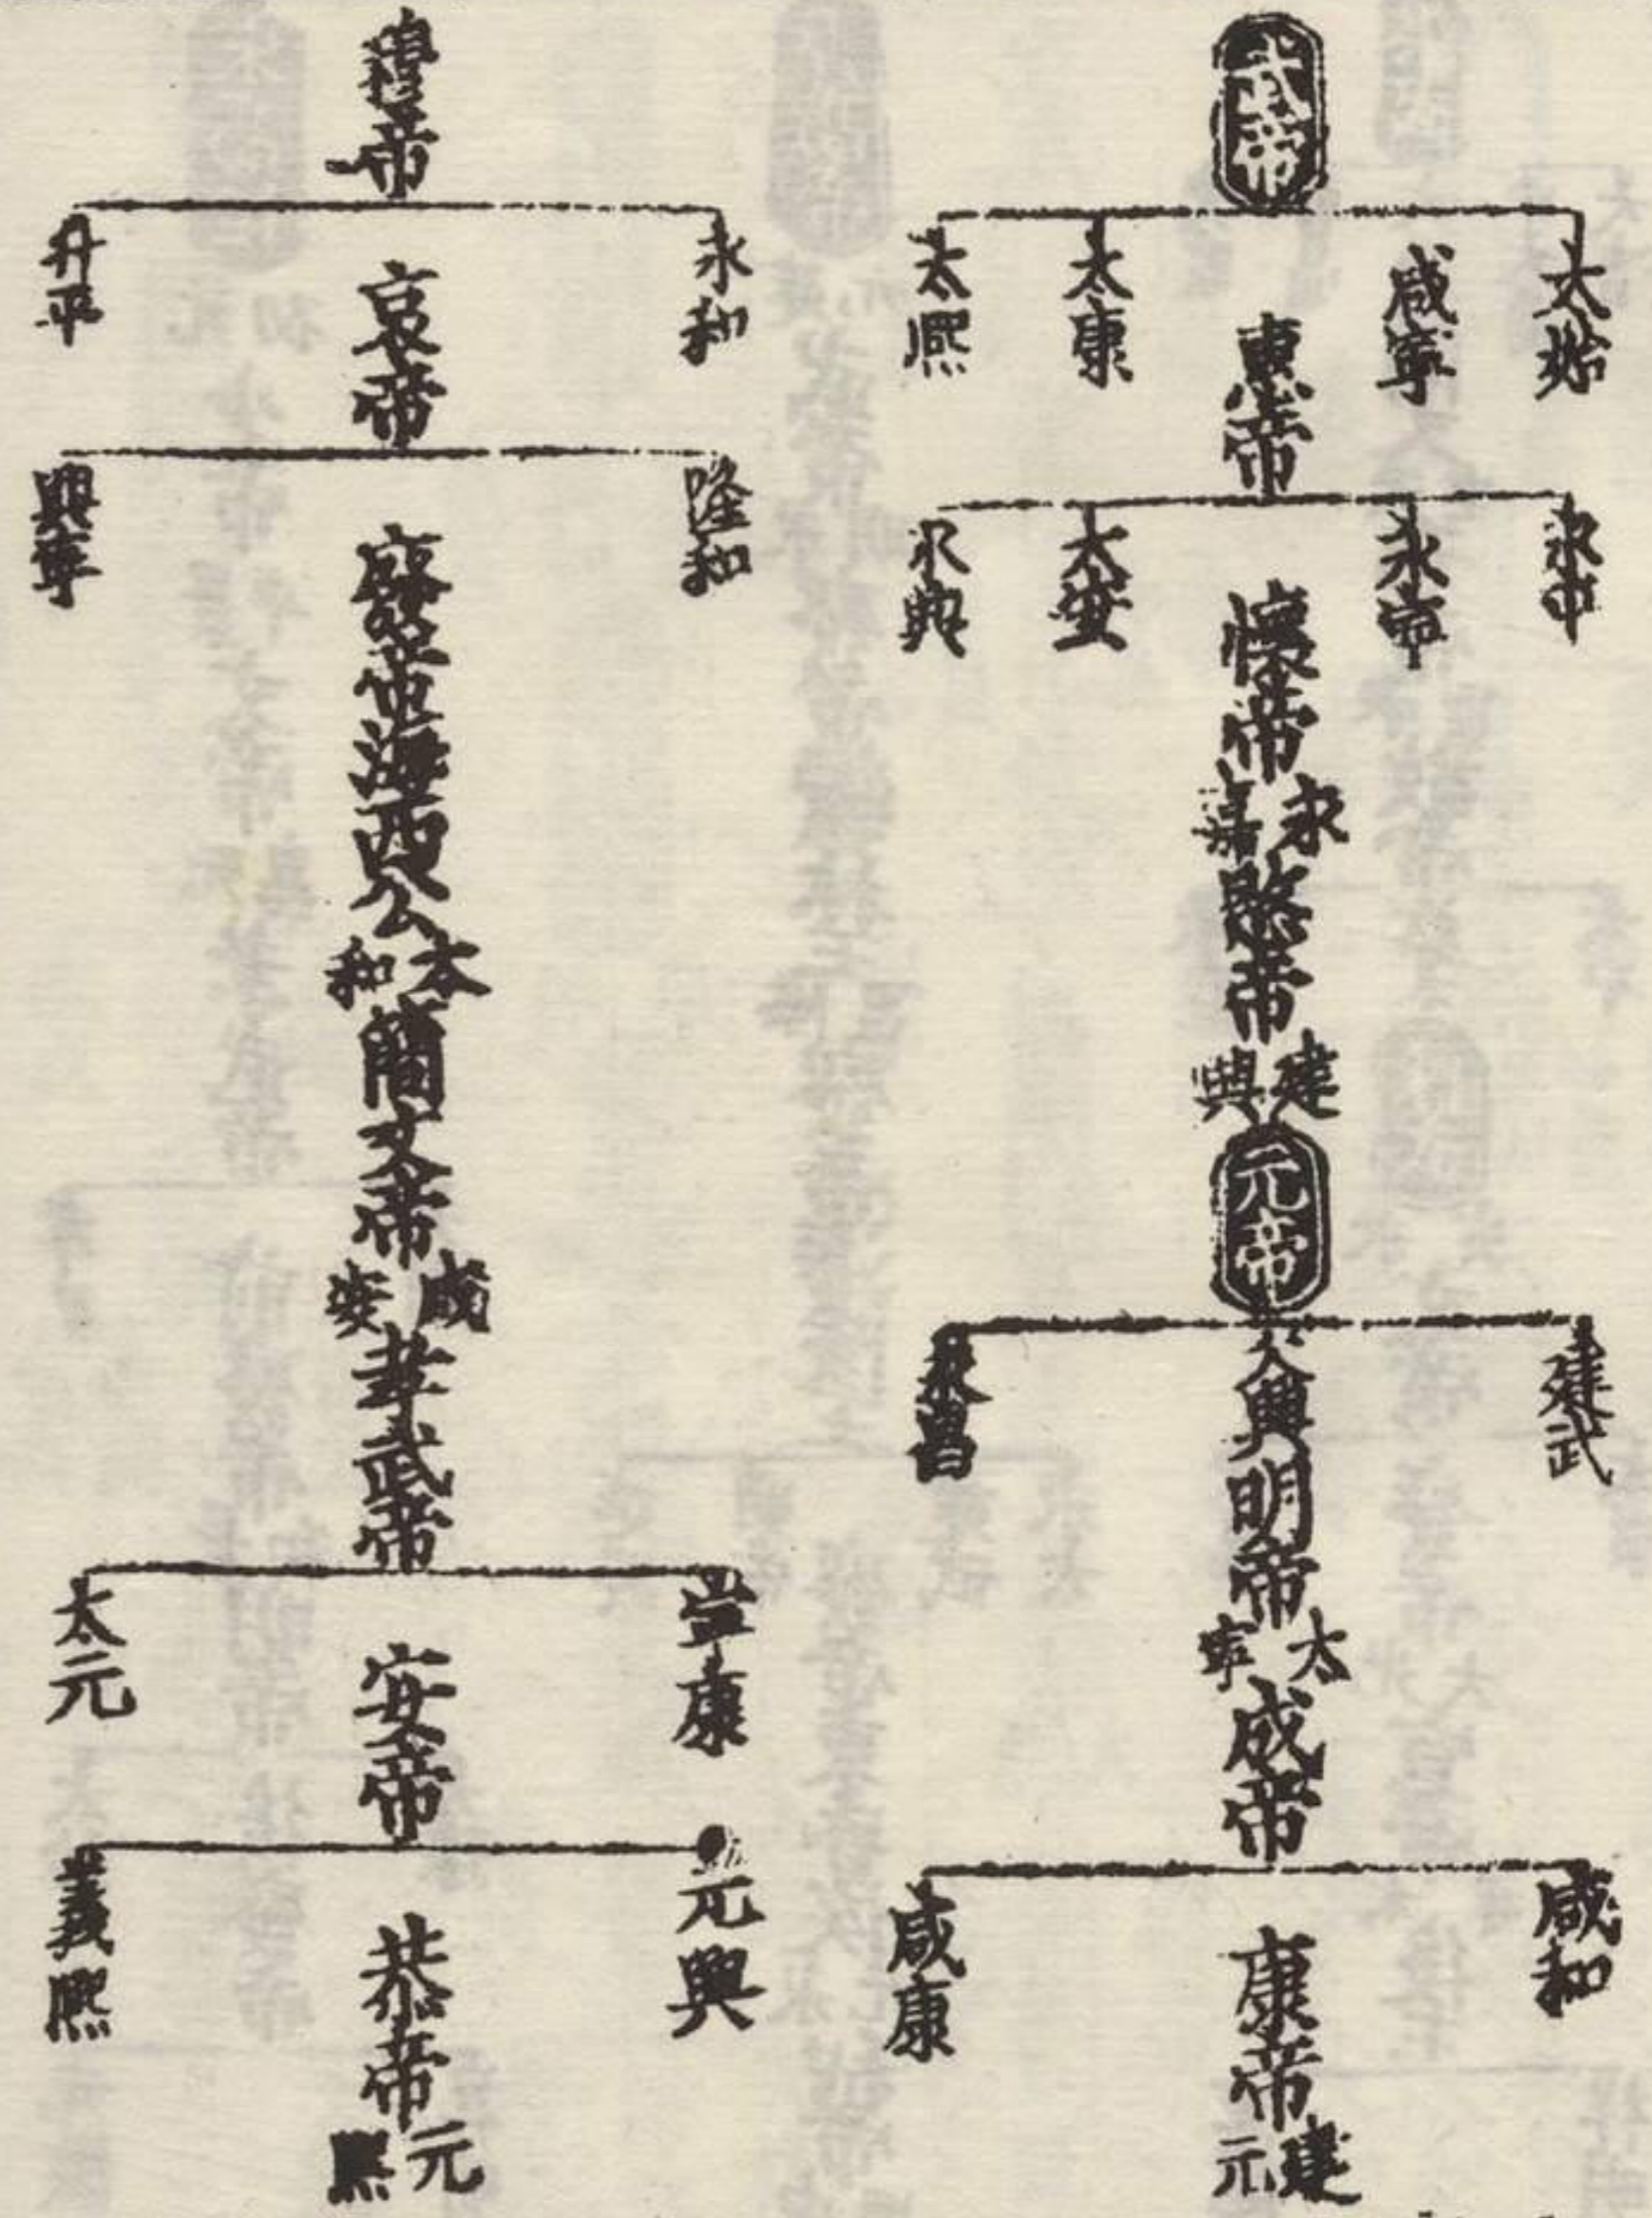 武帝
太始
咸寧
太康
太熙
惠帝
永
永寧
太安
永興
懷帝
永嘉
愍帝
建興
元帝
建武
大興
永昌
明帝
太寧
成帝
咸和
咸康
康帝
建元
穆帝
永和
升平
哀帝
隆和
興寧
廢帝海西公
太和
簡文帝
咸安
孝武帝
寧康
太元
安帝
元興
義熙
恭帝
元熙